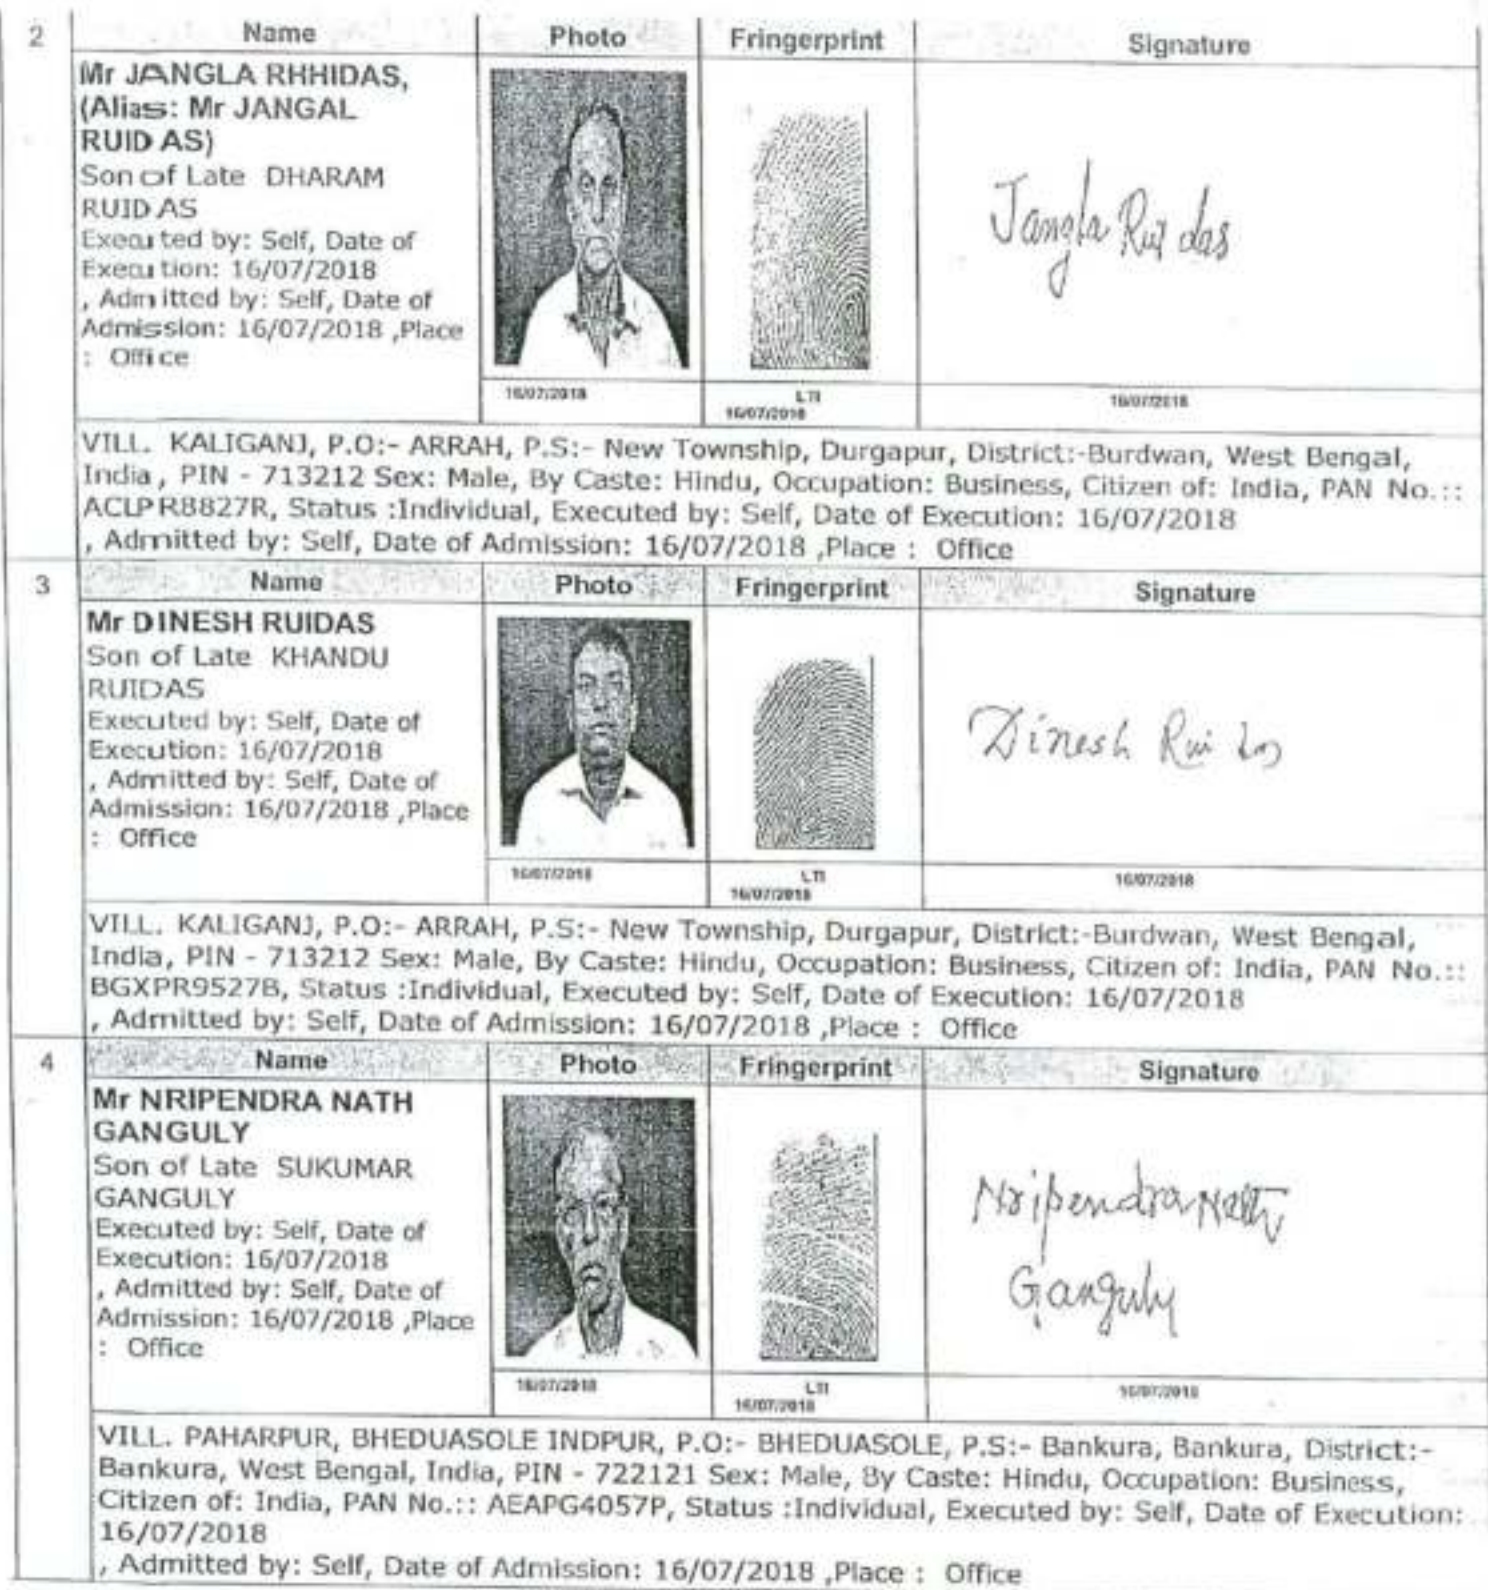 2
Name Photo Fringerprint Signature
Mr JANGLA RHHIDAS,
(Alias: Mr JANGAL
RUIDAS)
Son of Late DHARAM
RUIDAS
Executed by: Self, Date of
Execution: 16/07/2018
, Admitted by: Self, Date of
Admission: 16/07/2018 ,Place
: Office
Jangla Rui das
16/07/2018 LTI 16/07/2018
16/07/2018
VILL. KALIGANJ, P.O:- ARRAH, P.S:- New Township, Durgapur, District:-Burdwan, West Bengal,
India, PIN - 713212 Sex: Male, By Caste: Hindu, Occupation: Business, Citizen of: India, PAN No.::
ACLPR8827R, Status :Individual, Executed by: Self, Date of Execution: 16/07/2018
, Admitted by: Self, Date of Admission: 16/07/2018 ,Place : Office
3
Name Photo Fringerprint Signature
Mr DINESH RUIDAS
Son of Late KHANDU
RUIDAS
Executed by: Self, Date of
Execution: 16/07/2018
, Admitted by: Self, Date of
Admission: 16/07/2018 ,Place
: Office
Dinesh Rui das
16/07/2018 LTI 16/07/2018
16/07/2018
VILL. KALIGANJ, P.O:- ARRAH, P.S:- New Township, Durgapur, District:-Burdwan, West Bengal,
India, PIN - 713212 Sex: Male, By Caste: Hindu, Occupation: Business, Citizen of: India, PAN No.::
BGXPR9527B, Status :Individual, Executed by: Self, Date of Execution: 16/07/2018
, Admitted by: Self, Date of Admission: 16/07/2018 ,Place : Office
4
Name Photo Fringerprint Signature
Mr NRIPENDRA NATH
GANGULY
Son of Late SUKUMAR
GANGULY
Executed by: Self, Date of
Execution: 16/07/2018
, Admitted by: Self, Date of
Admission: 16/07/2018 ,Place
: Office
Nripendra Nath
Ganguly
16/07/2018 LTI 16/07/2018
16/07/2018
VILL. PAHARPUR, BHEDUASOLE INDPUR, P.O:- BHEDUASOLE, P.S:- Bankura, Bankura, District:-
Bankura, West Bengal, India, PIN - 722121 Sex: Male, By Caste: Hindu, Occupation: Business,
Citizen of: India, PAN No.:: AEAPG4057P, Status :Individual, Executed by: Self, Date of Execution:
16/07/2018
, Admitted by: Self, Date of Admission: 16/07/2018 ,Place : Office